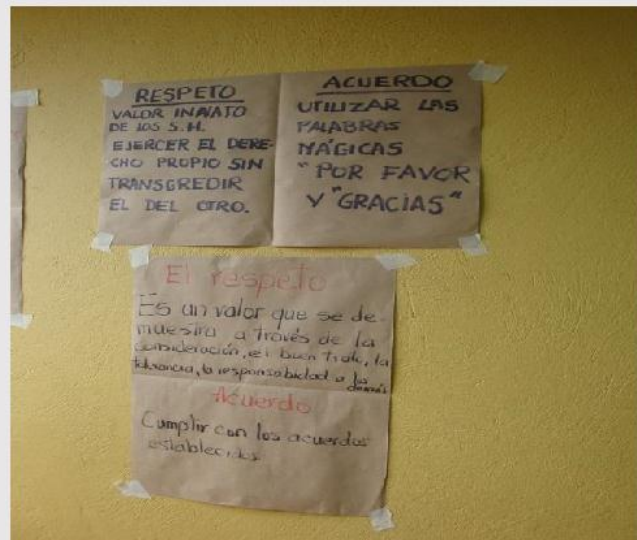 RESPETO
VALOR INNATO
DE LOS S.H.
EJERCER EL DERE-
CHO PROPIO SIN
TRANSGREDIR
EL DEL OTRO.
ACUERDO
UTILIZAR LAS
PALABRAS
MÁGICAS
"POR FAVOR
Y "GRACIAS"
El respeto
Es un valor que se de-
muestra a través de la
consideración, el buen trato, la
tolerancia, la responsabilidad a los
demás
Acuerdo
Cumplir con los acuerdos
establecidos